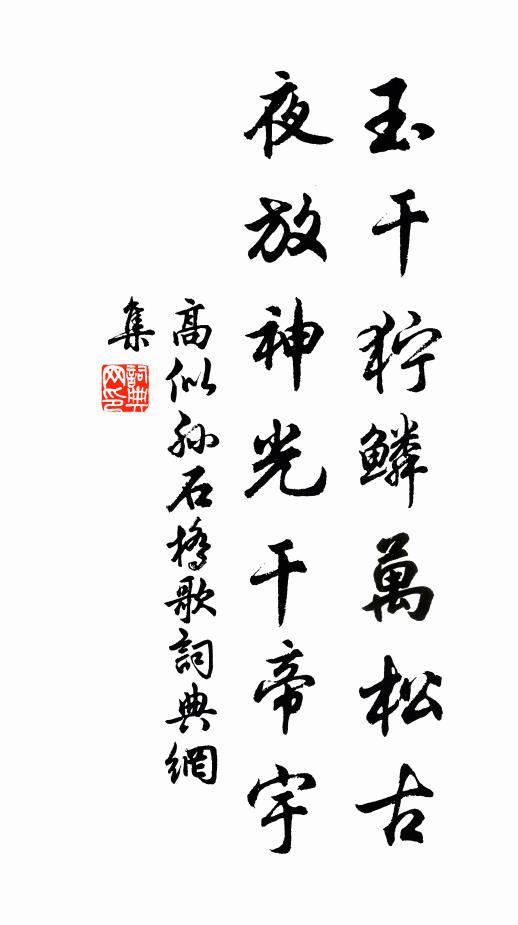 玉干狞鳞萬松古
夜放神光干帝宇
高似孙石橋歌詞典網
集
詞典网印